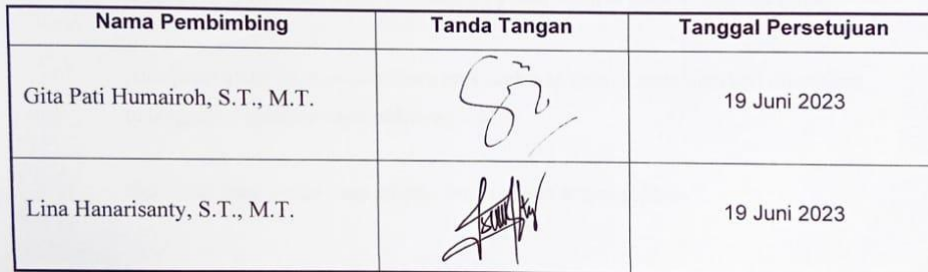 Nama Pembimbing Tanda Tangan Tanggal Persetujuan
Gita Pati Humairoh, S.T., M.T. 19 Juni 2023
Lina Hanarisanty, S.T., M.T. 19 Juni 2023